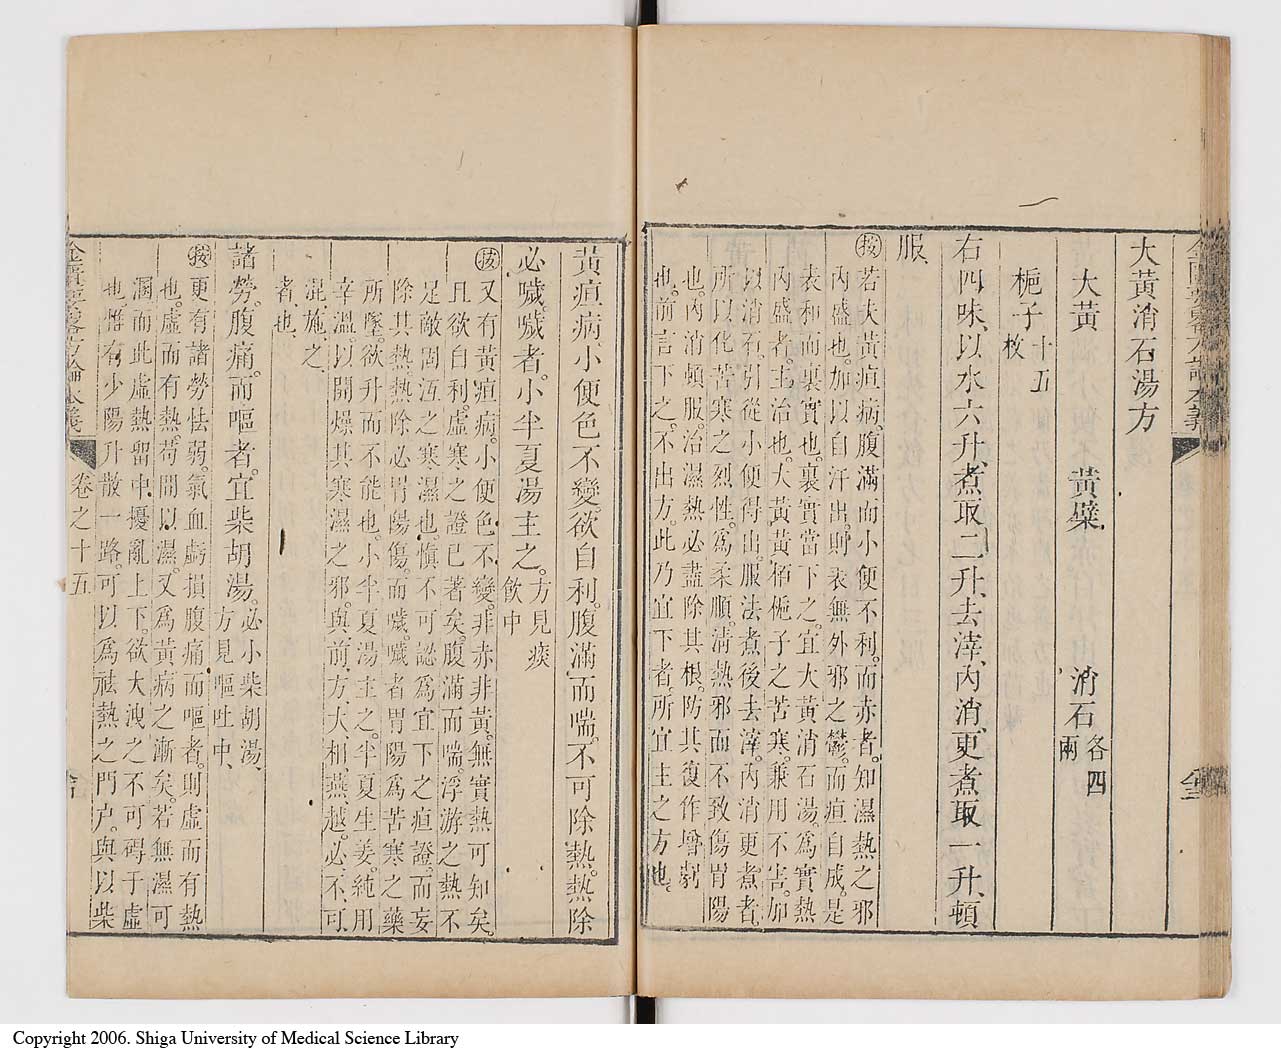 大黃消石湯方
大黃 黃檗 消石各四兩
梔子十五枚
右四味、以水六升、煮取二升、去滓、內消、更煮取一升、頓
服、
按若夫黃疸病、腹滿而小便不利。而赤者。知濕熱之邪
內盛也。加以自汗出。則表無外邪之鬱。而疸自成。是
表和而裏實也。裏實當下之。宜大黃消石湯。爲實熱
內盛者。主治也。大黃黃栢梔子之苦寒。兼用不害。加
以消石。引從小便得出。服法煮後去滓。內消更煮者。
所以化苦寒之烈性。爲柔順。淸熱邪而不致傷胃陽
也。內消頓服。治濕熱必盡除其根。防其復作增劇
也。前言下之。不出方。此乃宜下者所宜主之方也。
黃疸病、小便色不變。欲自利。腹滿而喘。不可除熱。熱除
必噦。噦者。小半夏湯主之。方見痰飲中
按又有黃疸病。小便色不變。非赤非黃。無實熱可知矣。
且欲自利。虛寒之證已著矣。腹滿而喘。浮游之熱不
足敵固沍之寒濕也。愼不可認爲宜下之疸證。而妄
除其熱。熱除必胃陽傷。而噦。噦者胃陽爲苦寒之藥
所墜。欲升而不能也。小半夏湯主之。半夏生姜。純用
辛溫。以開燥其寒濕之邪。與前方大相燕越。必不可
混施之
者也。
諸勞。腹痛。而嘔者。宜柴胡湯。必小柴胡湯、方見嘔吐中、
按更有諸勞怯弱。氣血虧損。腹痛而嘔者。則虛而有熱
也。虛而有熱。苟間以濕。又爲黃病之漸矣。若無濕可
溷。而此虛熱留中。擾亂上下。欲大洩之不可。碍于虛
也。惟有少陽升散一路。可以爲祛熱之門户。與以柴
金匱要畧方論本義 卷之十五